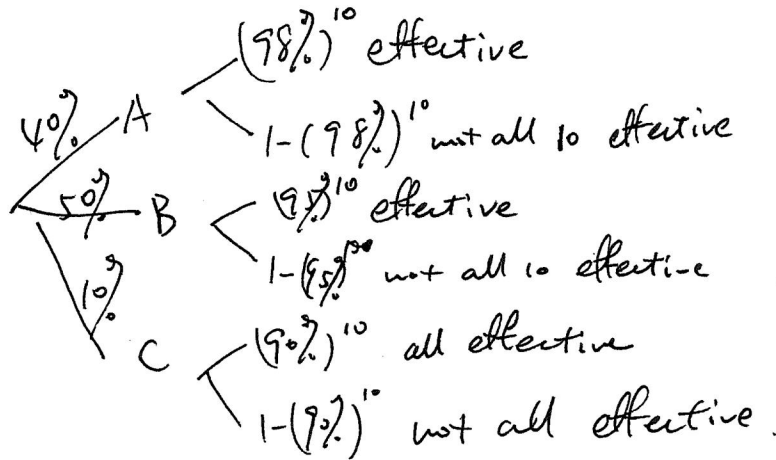 (98%)^10 effective
40% A
1-(98%)^10 not all 10 effective
50% B (95%)^10 effective
1-(95%)^10 not all 10 effective
10%
C (90%)^10 all effective
1-(90%)^10 not all effective.